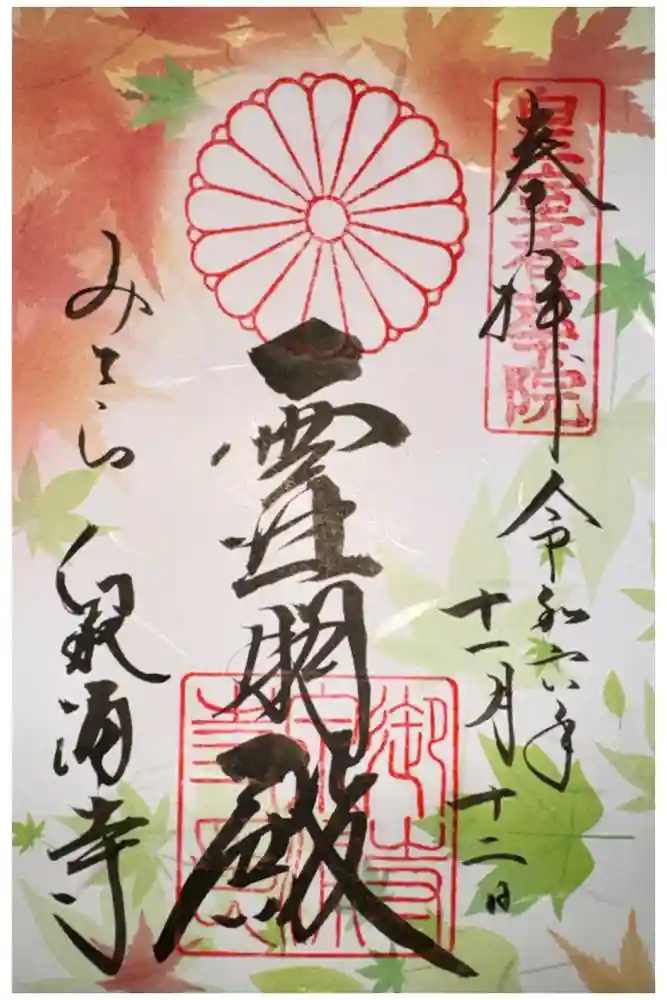 皇室香華院
奉拝
令和六年
十一月十二日
霊明殿
みてら
泉涌寺